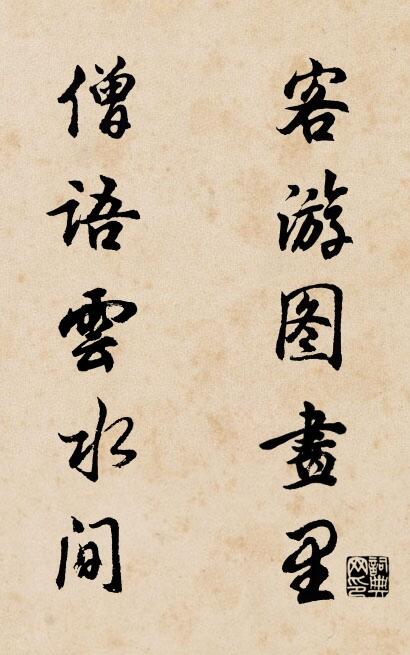 客游图畫里
僧語雲水间
詞典网印